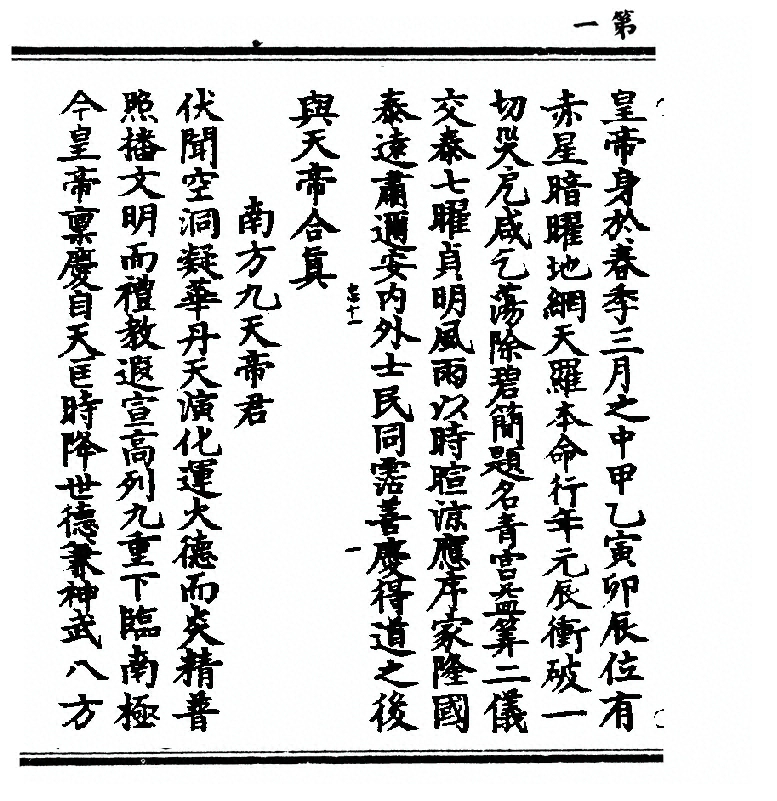 第一
皇帝身於春季三月之中甲乙寅卯辰位有
赤星暗曜地網天羅本命行年元辰衝破一
切災戹咸乞蕩除碧簡題名青宮益筭二儀
交泰七曜貞明風雨以時暄涼應序家隆國
泰遠肅邇安内外士民同霑善慶得道之後
與天帝合真
忠十一
一
南方九天帝君
伏聞空洞凝華丹天演化運火德而炎精普
照播文明而禮教遐宣高列九重下臨南極
今皇帝稟慶自天匡時降世德兼神武八方